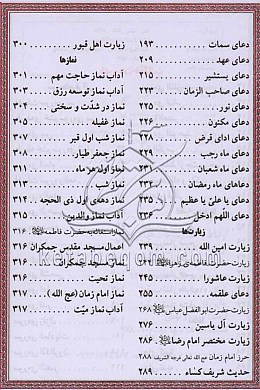 دعای سمات ۱۹۳
دعای عهد ۲۰۹
دعای یستشیر ۲۱۵
دعای صاحب الزمان ۲۲۳
دعای نور ۲۲۵
دعای مکنون ۲۲۶
دعای ادای قرض ۲۲۸
دعای ماه رجب ۲۲۹
دعای ماه شعبان ۲۳۱
دعاهای ماه رمضان ۲۳۲
دعای یا علیّ یا عظیم ۲۳۵
دعای اللّهم ادخل ۲۳۶
زیارت‌ها
زیارت امین الله ۲۳۹
زیارت حضرت فاطمه‌ی زهرا
زیارت عاشورا ۲۴۵
دعای علقمه ۲۵۵
زیارت حضرت ابوالفضل عباس ۲۶۸
زیارت آل یاسین ۲۷۶
زیارت مختصر امام رضا ۲۸۶
حرز امام زمان عج الله تعالی فرجه الشریف ۲۸۸
حدیث شریف کساء ۲۸۹
زیارت اهل قبور ۳۰۰
نمازها
آداب نماز حاجت مهم ۳۰۱
آداب نماز توسعه رزق ۳۰۳
نماز در شدّت و سختی ۳۰۴
نماز غفیله ۳۰۵
نماز شب اول قبر ۳۰۷
نماز جعفر طیار ۳۰۸
نماز اول هر ماه ۳۱۱
نماز شب ۳۱۳
نماز دهه‌ی اول ذی الحجه ۳۱۴
آداب نماز والدین ۳۱۵
نماز استغاثه به حضرت فاطمه ۳۱۶
اعمال مسجد مقدس جمکران ۳۱۶
نماز مسجد جمکران ۳۱۶
نماز تحیت ۳۱۶
نماز امام زمان (عج الله) ۳۱۷
آداب نماز میّت ۳۱۷